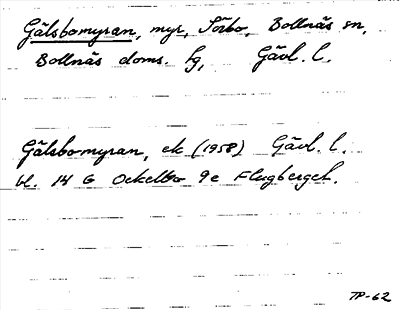 Gälsbomyran, myr, Sörbo, Bollnäs sn,
Bollnäs doms. fg, Gävl. l.
Gälsbomyran, ek (1958) Gävl. l.
bl. 14 G Ockelbo 9e Flugberget.
TP-62